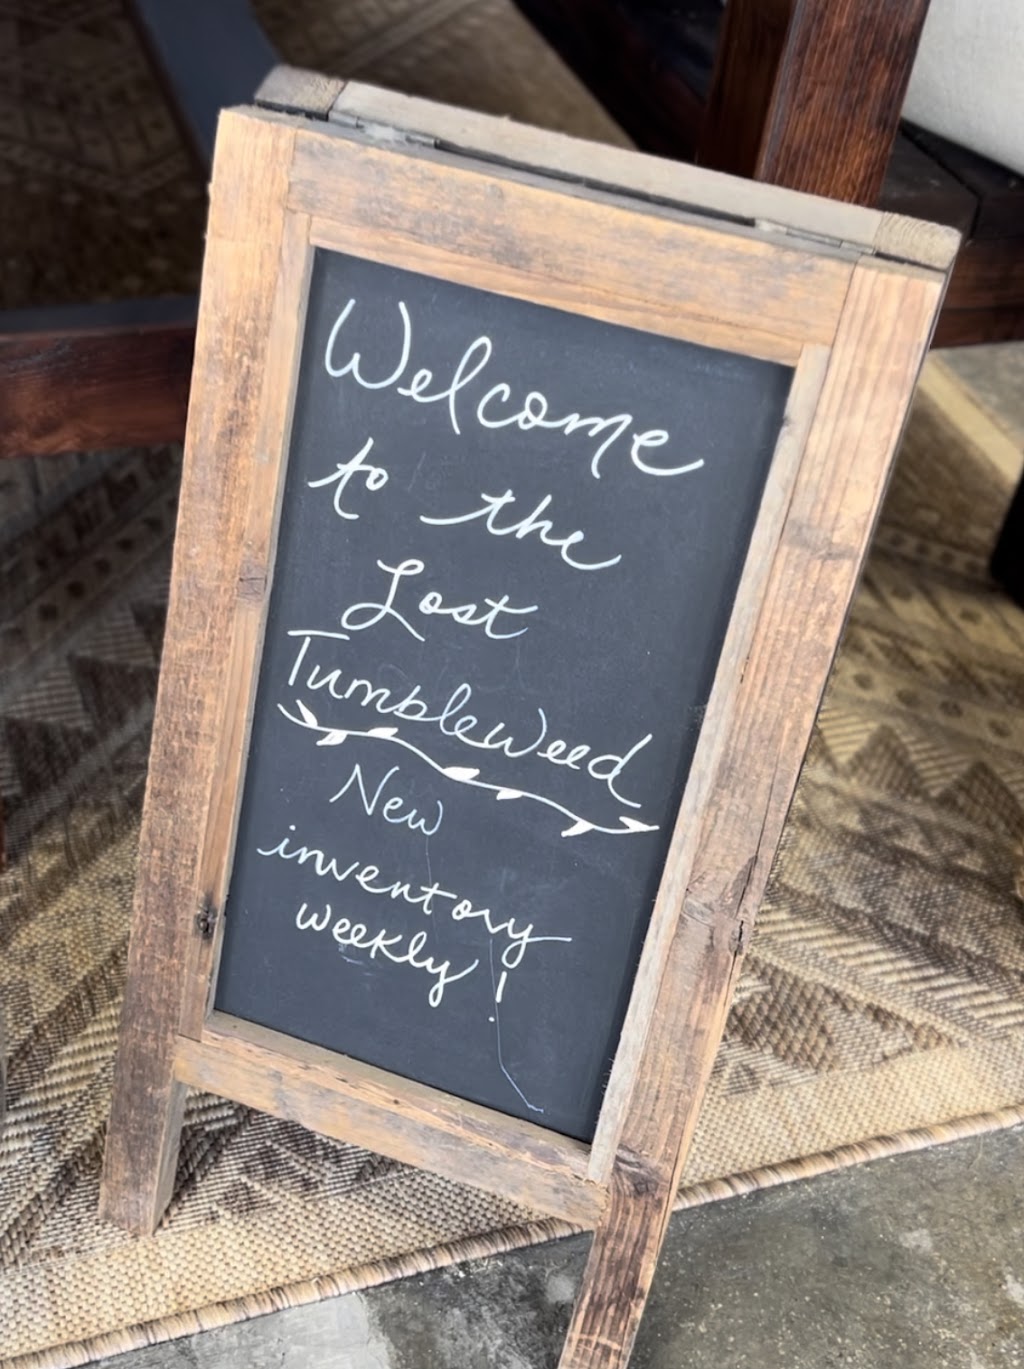 Welcome
to the
Lost
Tumbleweed
New
inventory
weekly!